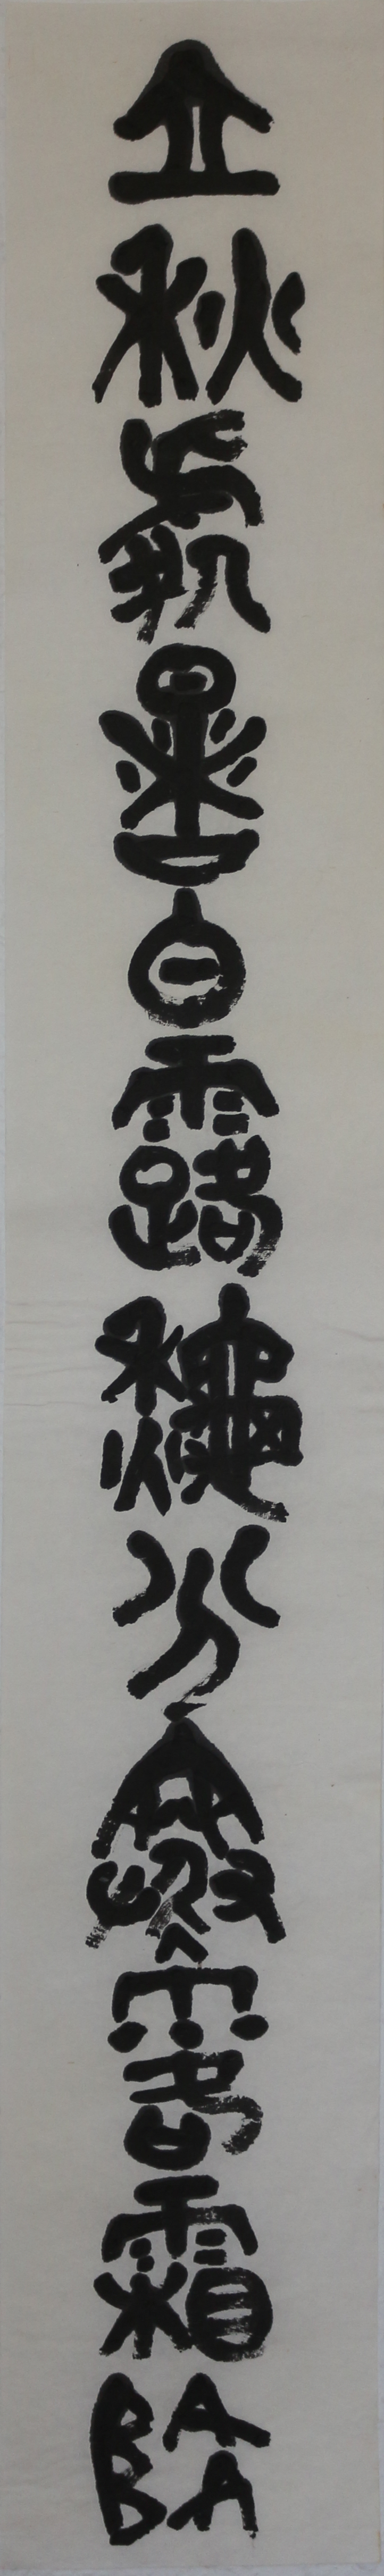 立秋處暑白露龝分寒露霜降